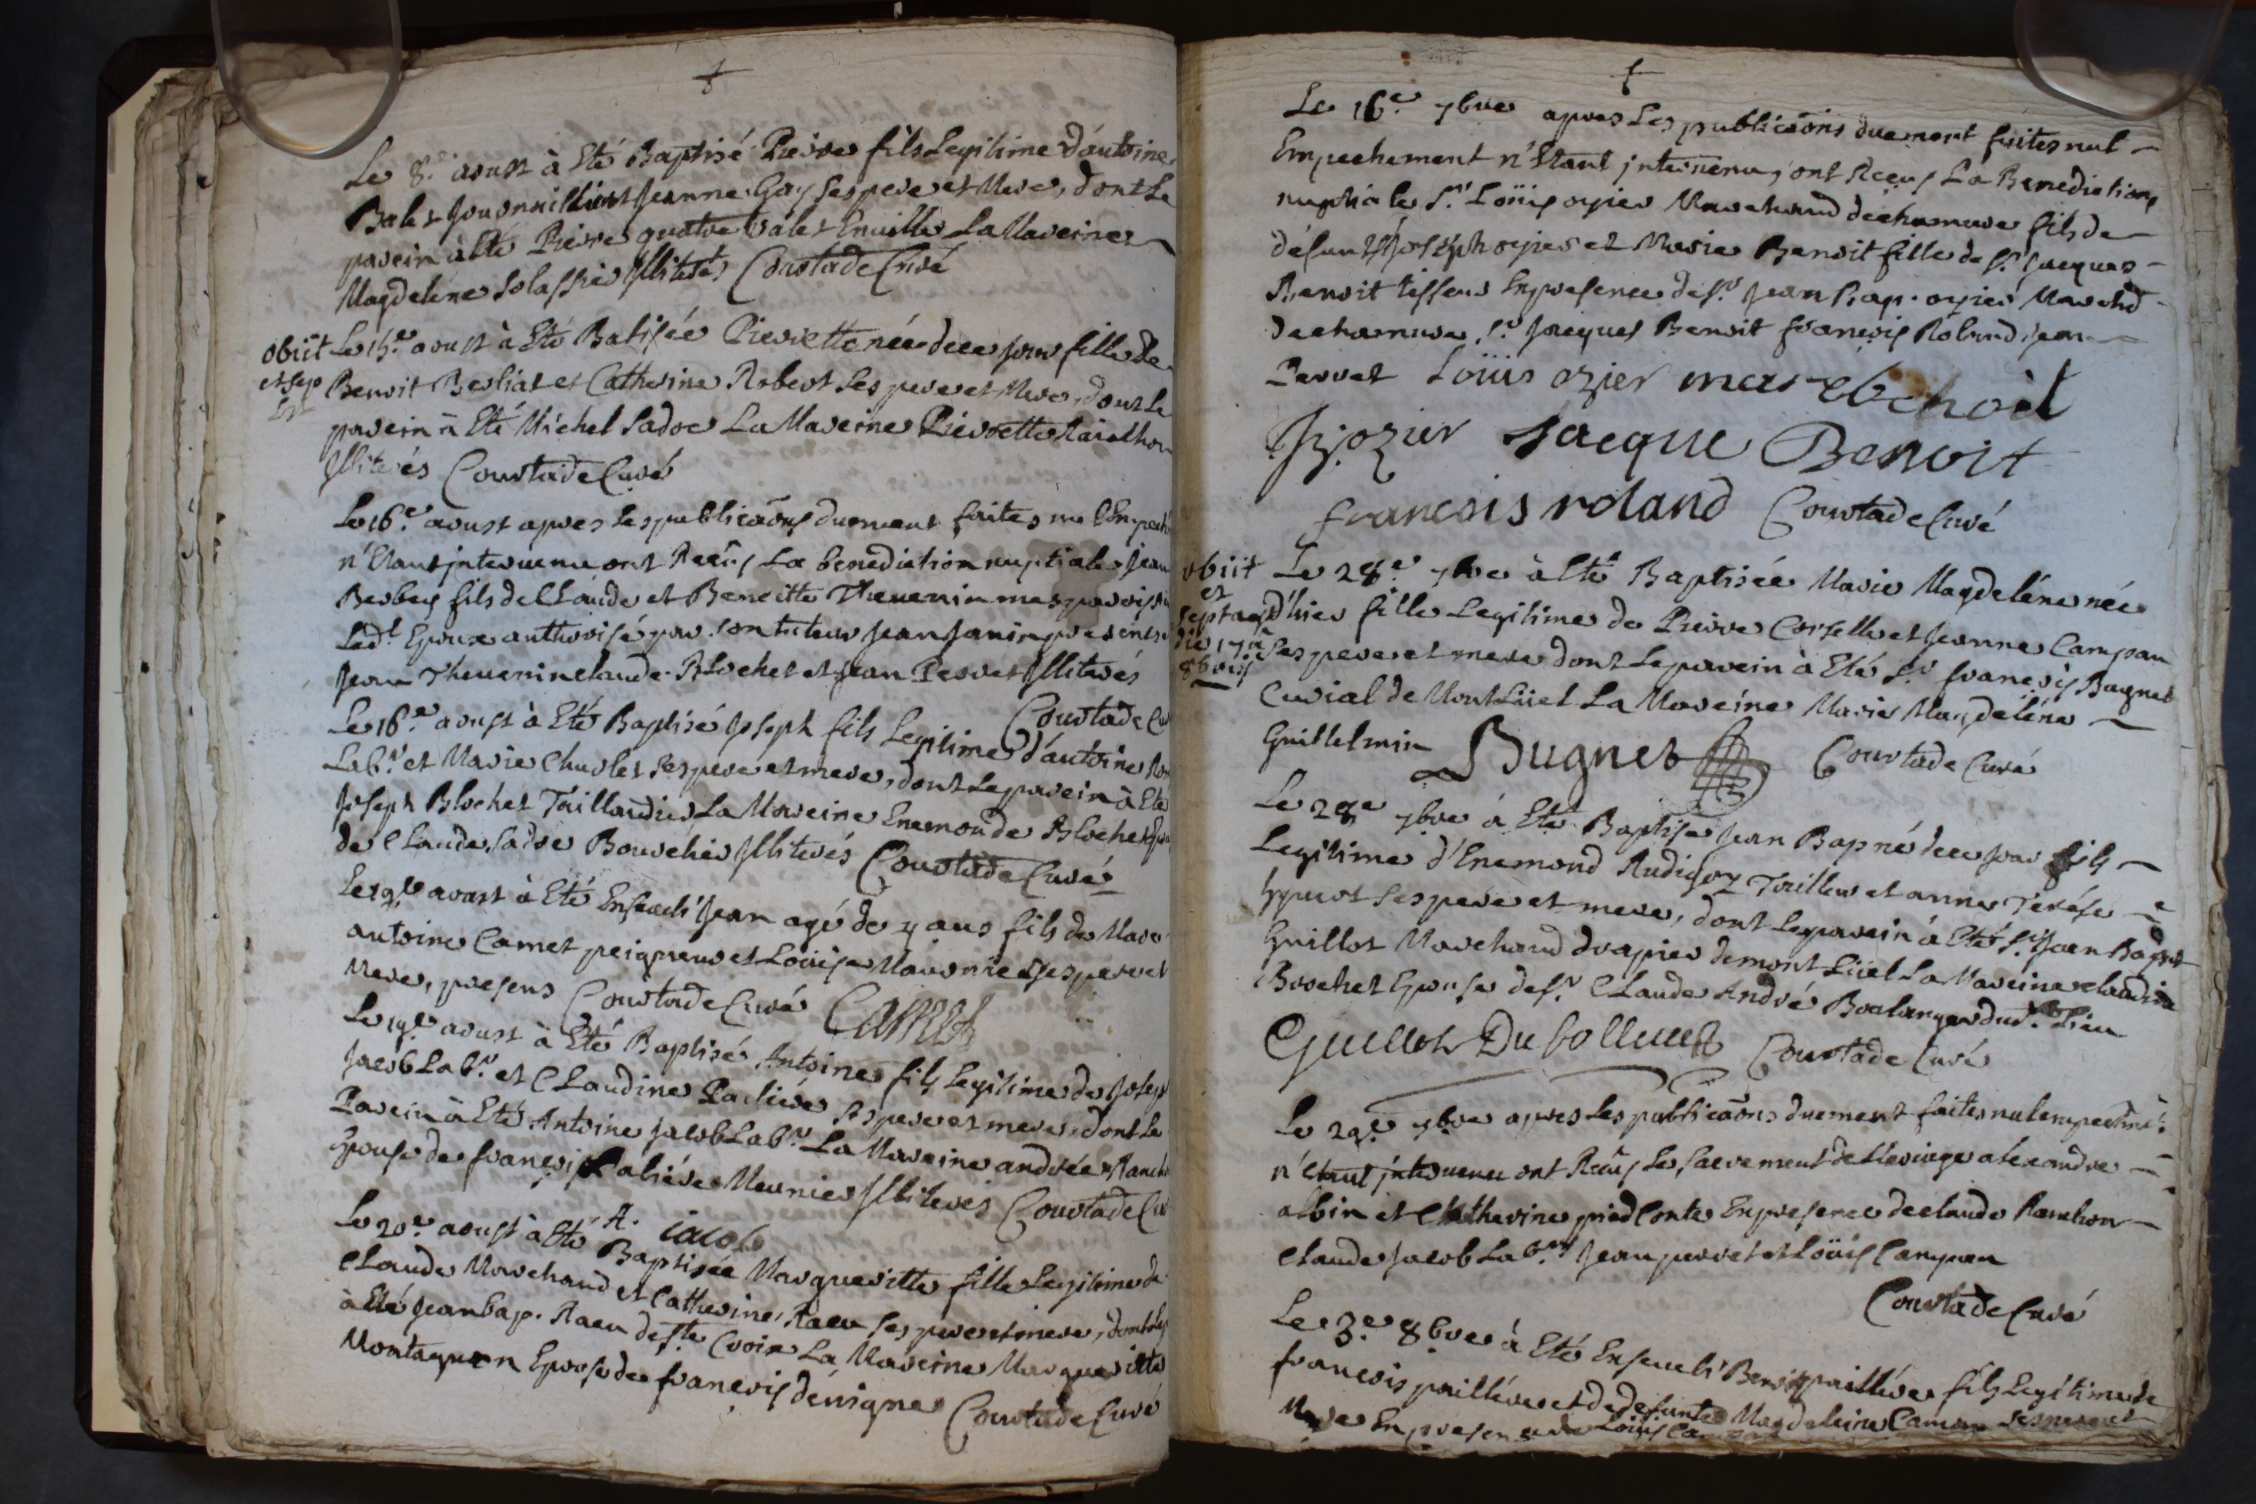 Le 8.e aoust à Eté Baptisé Pierre fils Legitime d'antoine
Balet Journaillier et Jeanne Gay ses pere et Mere, dont Le
parein à Eté Pierre quatre vale La Mareine
Magdeléne Solassier Illiterés Courtade Curé
obiit
et sep
Le 15.e aoust à Eté Batisée Pierrette née de ce jour fille de
Benoit Berliat et Catherine Robert Ses pere et Mere, dont Le
parein à Eté Michel Sadoe La Mareine Pierrette
Illiterés Courtade Curé
Le 16.e aoust apres Les publicãons duement faites nul Empech
n'Etant intervenu ont Reçûs La benediction nuptiale Jean
Berbey fils de Claude et Benoitte Thevenin mes parois
Led.t Epoux authorisé par son tuteur Jean Janin presents
Jean Thevenin claude Blochet et Jean Pervet Illiterés
Courtade Cu
Le 16.e aoust à Eté Baptisé Joseph fils Legitime d'antoine
Lab.r et Marie Charlet ses pere et mere, dont Le parein à Eté
Joseph Blochet Taillandier La Mareine Enemonde Blochet
de Claude Sadoe Boucher Illiterés Courtade Curé
Le 19.e aoust à Eté Enseveli Jean agé de 4 ans fils de Marc
antoine Camet peigneur et Loüise ses pere et
Mere, presens Courtade Curé Camet
Le 19.e aoust à Eté Baptisé Antoine fils Legitime de Joseph
Jacob Lab.r et Claudine Paliére ses pere et mere, dont Le
Parein à Eté Antoine Jacob Lab.r La Mareine andrée Ranch
Epouse de françois Paliére Meunier Illiterés Courtade Cu
A. iacob
Le 20.e aoust à Eté Baptisée Margueritte fille Legitime de
Claude Marchand et Catherine Raeu ses pere et mere, dont Le p
à Eté Jean bap. Raeu de s.te Croix La Mareine Marguerittte
Montagnon Epouse de françois dévigne Courtade Curé
Le 16.e 7bre apres Les publicãons duement faites nul
Empechement n'Etant intervenu, ont Reçus La Benediction
nuptiale S.r Loüis ozier Marchand de chanvre fils de
défunt S.r Joseph ozier et Marie Benoit fille de S.r Jacques
Benoit tisseur En presence de S.r Jean Bap. ozier March.d
de chanvre, S.r Jacques Benoit françois Roland, jean
Pervet Loüis ozier marie benoit
J. B. ozier Jacque Benoit
francois roland Courtade Curé
obiit
et
Le 28.e 7bre à Eté Baptisée Marie Magdeléne née
d'hier fille Legitime de Pierre Corselle et Jeanne Campan
ses pere et mere dont Le parein à Eté S.r françois Bugnet
Curial de Montlüel La Mareine Marie Magdeléne
Guillelmin Bugnet Courtade Curé
Le 28.e 7bre à Eté Baptisé Jean Bap né de ce jour fils
Legitime d'Enemond Audigoz Tailleur et anne Terése
ses pere et mere, dont Le parein à Eté S.r Jean Bap.te
Guillot Marchand drapier de montlüel La Mareine claudine
Brochet Epouse de s.r Claude André Boulanger dud.t Lieu
Guillot Courtade Curé
Le 29.e 7bre apres Les publicãons duement faites nul empechm.t
n'Etant intervenu ont Reçûs Le Sacrement de Mariage alexandre
albin et Chatherine En presence de claude Ranchon
Claude Jacob Lab.rs Jean pervet et Loüis Campan
Courtade Curé
Le 3.e 8bre à Eté Enseveli Benoit pailliére fils Legitime de
françois pailliére et de defunte Magdeleine Campan ses pere et
Mere En presence de Loüis